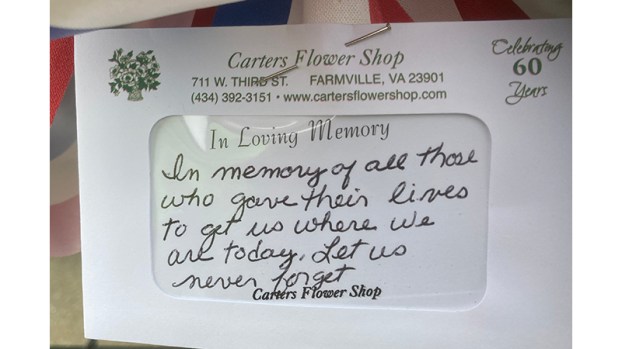 Carters Flower Shop
711 W. THIRD ST. FARMVILLE, VA 23901
(434) 392-3151 • www.cartersflowershop.com
Celebrating
60
Years
In Loving Memory
In memory of all those
who gave their lives
to get us where we
are today. Let us
never forget
Carters Flower Shop